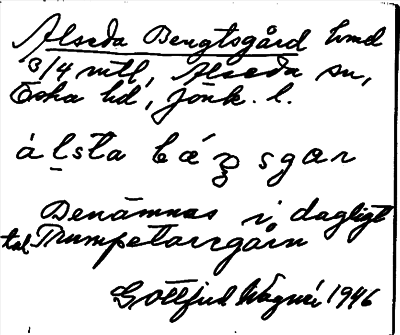 Alseda Bengtsgård hmd
3/4 mtl, Alseda sn,
Östra hd, Jönk. l.
álsta bá sgar
Benämnes i dagligt
tal Trumpetaregårn
Gottfrid Wagnér 1946